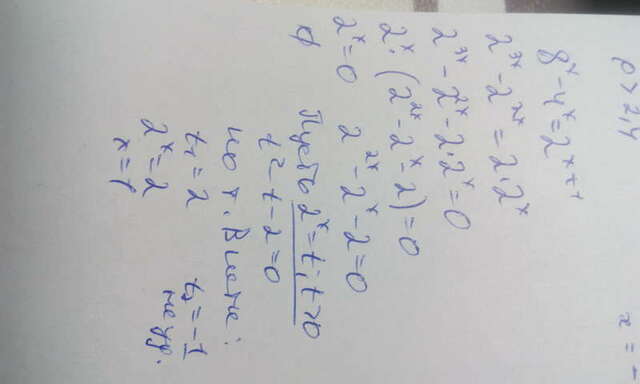 p > 2,4
x = -
8^x - 4^x = 2^{x+1}
2^{3x} - 2^{2x} = 2·2^x
2^{3x} - 2^{2x} - 2·2^x = 0
2^x · (2^{2x} - 2^x - 2) = 0
2^x = 0    2^{2x} - 2^x - 2 = 0
∅    Пусть 2^x = t, t > 0
t^2 - t - 2 = 0
По т. Виета:
t₁ = 2    t₂ = -1
2^x = 2
x = 1